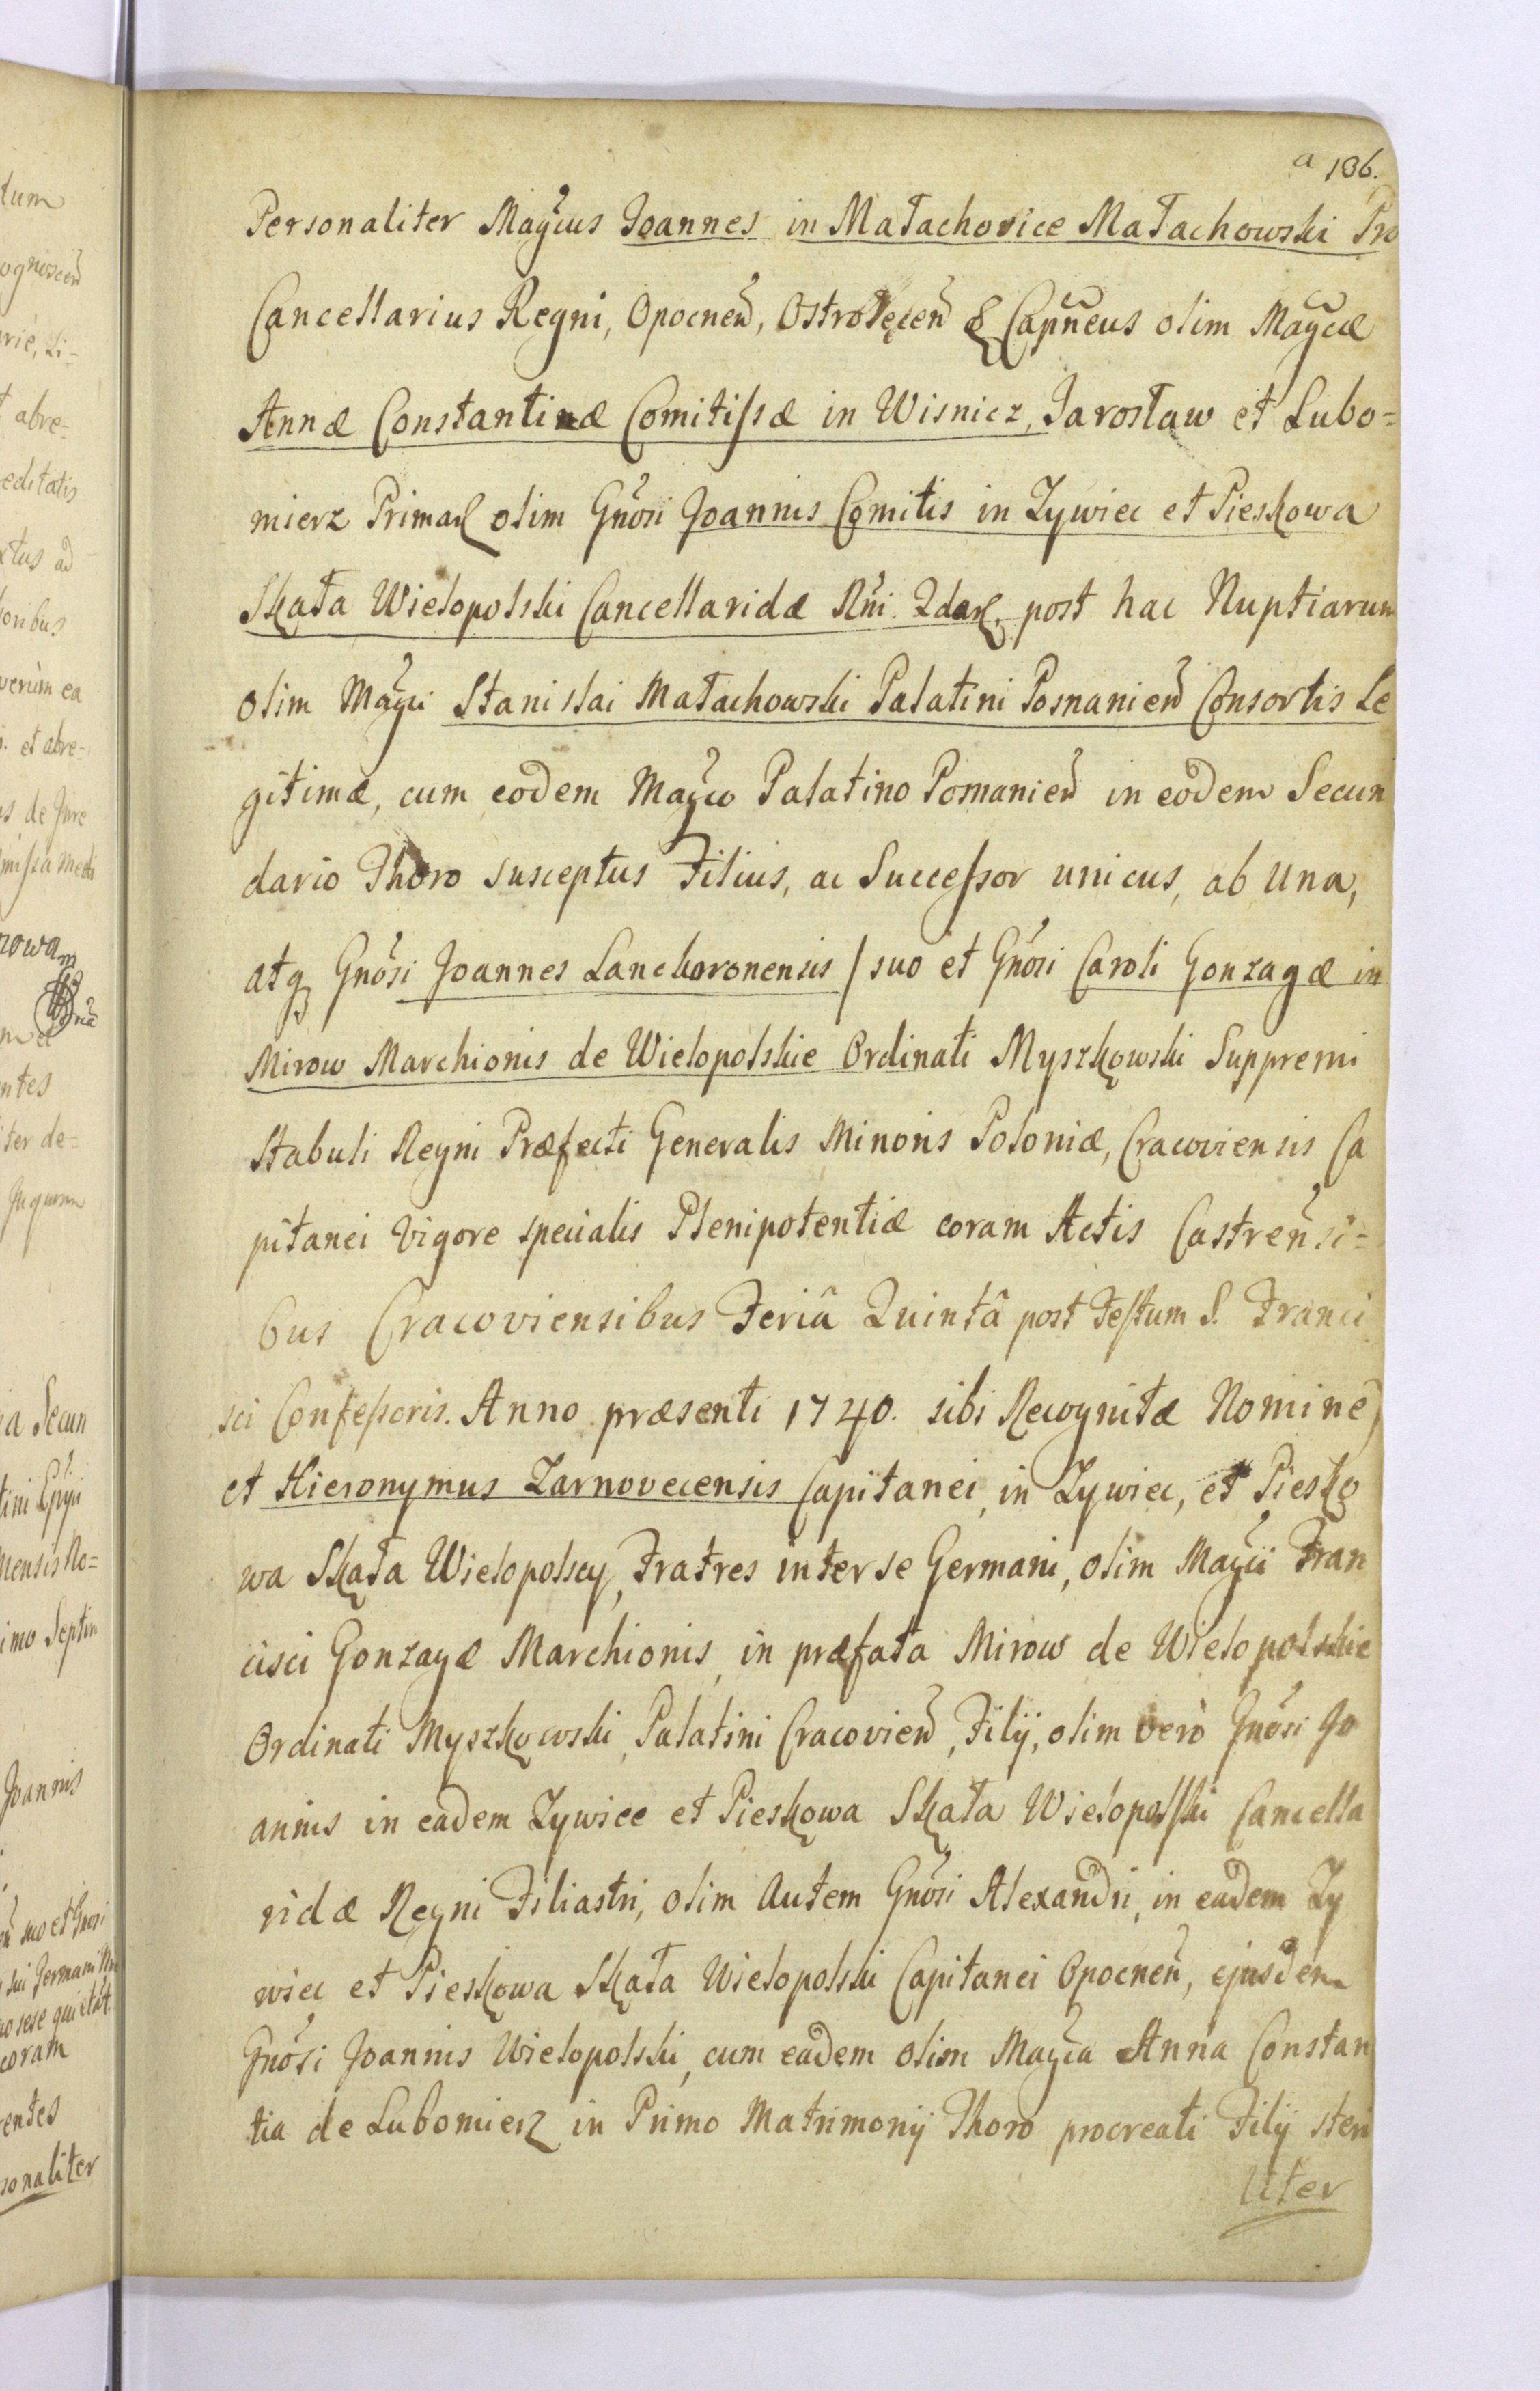 a 136.
Personaliter Magcus Joannes in Małachovice Małachowski Pro
Cancellarius Regni, Opocnen, Ostrołęcen & Capneus olim Magcæ
Annæ Constantinæ Comitissæ in Wisnicz, Jarosław et Lubo=
mierz Primar olim Gnosi Joannis Comitis in Zywiec et Pieskowa
Skała Wielopolski Cancellaridæ Rni 2dar, post hac Nuptiarum
olim Magci Stanislai Małachowski Palatini Posnanien Consortis Le
gitimæ, cum eodem Magco Palatino Posnanien in eodem Secun
dario Thoro susceptus Filius, ac Successor unicus, ab Una,
atq Gnosi Joannes Lanckoronensis / suo et Gnosi Caroli Gonzagæ in
Mirow Marchionis de Wielopolskie Ordinati Myszkowski Suppremi
Stabuli Regni Præfecti Generalis Minoris Poloniæ, Cracoviensis Ca
pitanei vigore specialis Plenipotentiæ coram Actis Castrensi=
bus Cracoviensibus Feriâ Quintâ post Festum S. Franci
sci Confessoris. Anno præsenti 1740. sibi Recognitæ Nomine /
et Hieronymus Zarnovecensis Capitanei, in Zywiec, et Piesko
wa Skała Wielopolscy, Fratres inter se Germani, olim Magci Fran
cisci Gonzagæ Marchionis, in præfata Mirow de Wielopolskie
Ordinati Myszkowski, Palatini Cracovien, Filij, olim verò Gnosi Jo
annis in eadem Zywiec et Pieskowa Skała Wielopolski Cancella
ridæ Regni Filiastri, olim Autem Gnosi Alexandri, in eadem Zy
wiec et Pieskowa Skała Wielopolski Capitanei Opocnen, ejusdem
Gnosi Joannis Wielopolski, cum eadem olim Magca Anna Constan
tia de Lubomierz in Primo Matrimonij Thoro procreati Filij steri
liter